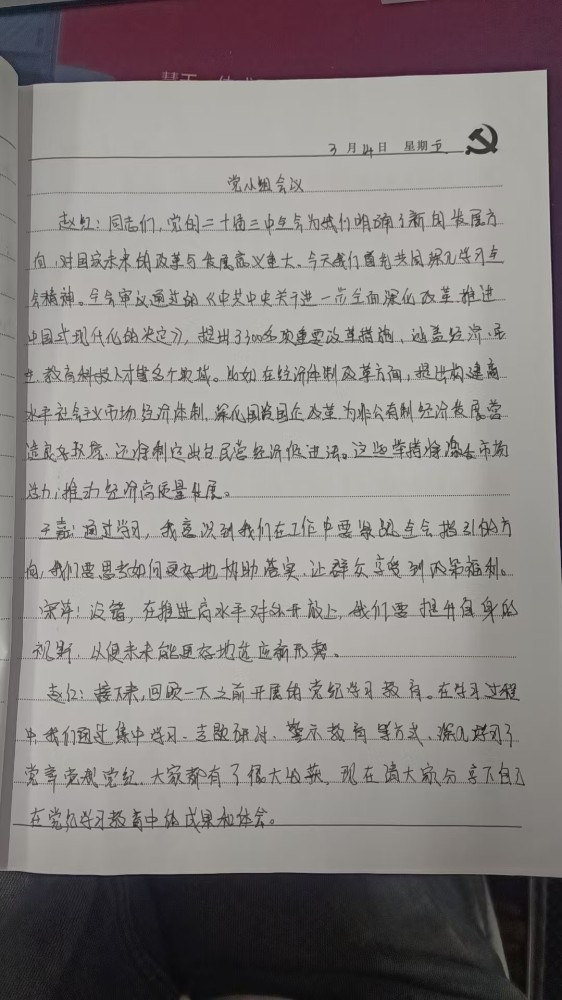 3月14日 星期五
党小组会议
赵红：同志们，党的二十届三中全会为我们明确了新的发展方
向，对国家未来的改革与发展意义重大。今天我们首先共同深入学习全
会精神。全会审议通过的《中共中央关于进一步全面深化改革、推进
中国式现代化的决定》，提出了300多项重要改革措施，涵盖经济、民
生、教育科技人才等多个领域。比如在经济体制改革方面，提出构建高
水平社会主义市场经济体制，深化国资国企改革，为非公有制经济发展营
造良好环境，还将制定出台民营经济促进法。这些举措将激发市场
活力，推动经济高质量发展。
王嘉：通过学习，我意识到我们在工作中要紧跟全会指引的方
向，我们要思考如何更好地协助落实，让群众享受到政策福利。
宋萍：没错，在推进高水平对外开放上，我们要提升自身的
视野，以便未来能更好地适应新形势。
赵红：接下来，回顾一下之前开展的党纪学习教育。在学习过程
中，我们通过集中学习、专题研讨、警示教育等方式，深入学习了
党章党规党纪，大家都有了很大收获，现在请大家分享下自己
在党纪学习教育中的成果和体会。